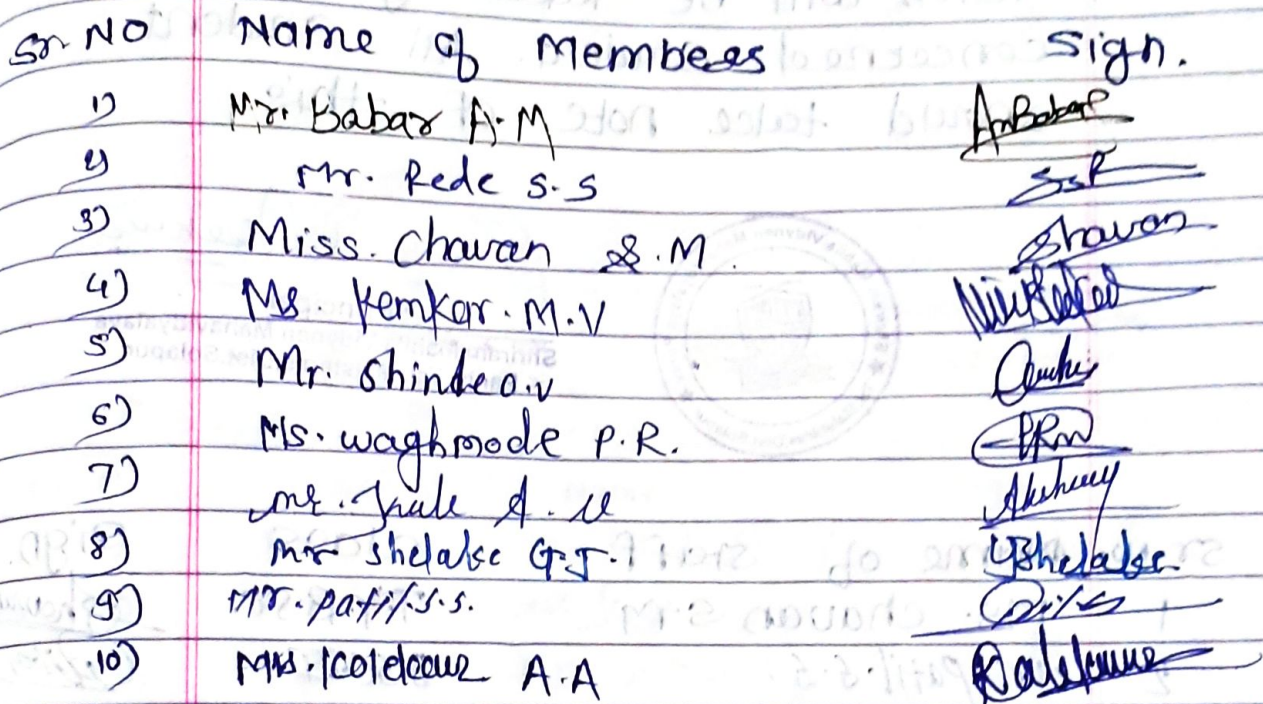 Sr. NO Name of Members Sign.
1) Mr. Babar A.M AmBabar
2) Mr. Rede S.S SSR
3) Miss. Chavan S.M. Chavan
4) Ms. Kemkar. M.V
5) Mr. Shinde O.V
6) Ms. Waghmode P.R. PRW
7) Mr. A. U Akshay
8) Mr Shelake G.J. GJShelake.
9) Mr. Patil S.S.
10) A.A